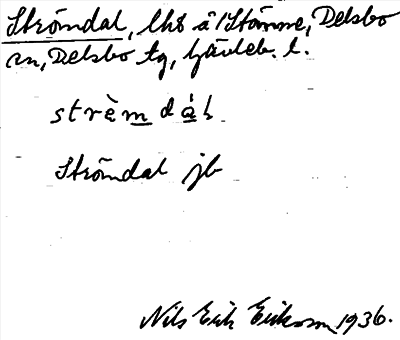 Strömdal, lht å 1 Stömne, Delsbo
sn, Delsbo tg, Gävleb. l.
strèm dá l.
Strömdal jb
Nils Erik Erikson 1936.